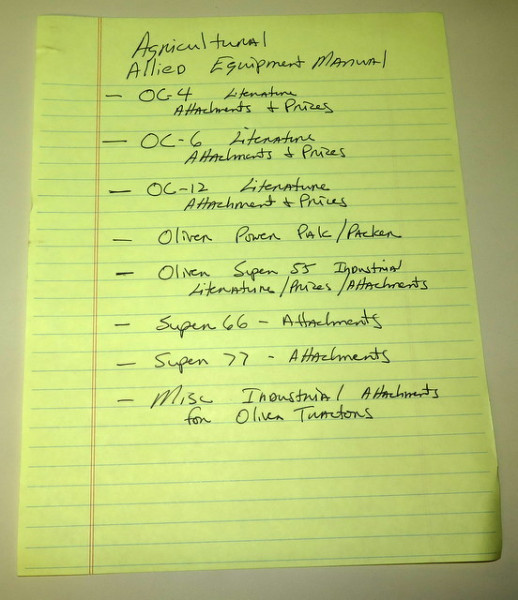 Agricultural
Allied Equipment Manual
- OC-4 Literature
Attachments + Prizes
- OC-6 Literature
Attachments + Prizes
- OC-12 Literature
Attachment + Prices
- Oliver Power Pak/Packer
- Oliver Super 55 Industrial
Literature/Prizes/Attachments
- Super 66 - Attachments
- Super 77 - Attachments
- Misc Industrial Attachments
for Oliver Tractors